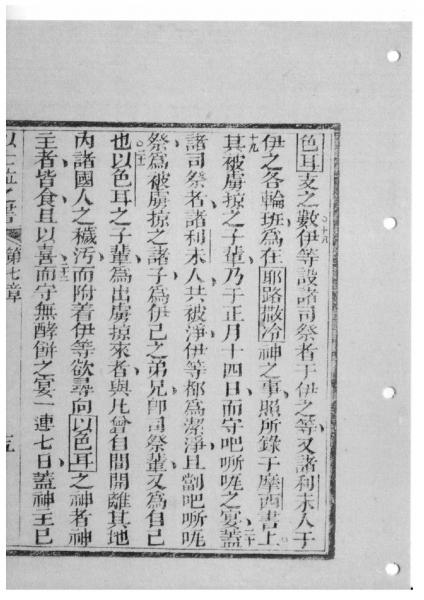 色耳支之數伊等設諸司祭者于伊之等又諸利未人于
伊之各輪班為在耶路撒冷神之事照所錄于摩西書上
其被虜掠之子輩乃于正月十四日而守吧𠵽咓之宴蓋
諸司祭者諸利未人共被淨伊等都為潔淨且劏吧𠵽咓
祭為被虜掠之諸子為伊己之弟兄即司祭輩又為自己
也以色耳之子輩為出虜掠來者與凡曾自間開離其地
內諸國人之穢污而附着伊等欲尋向以色耳之神者神
主者皆食且以喜而守無酵餅之宴一連七日蓋神主已
以士拉之書 第七章 五